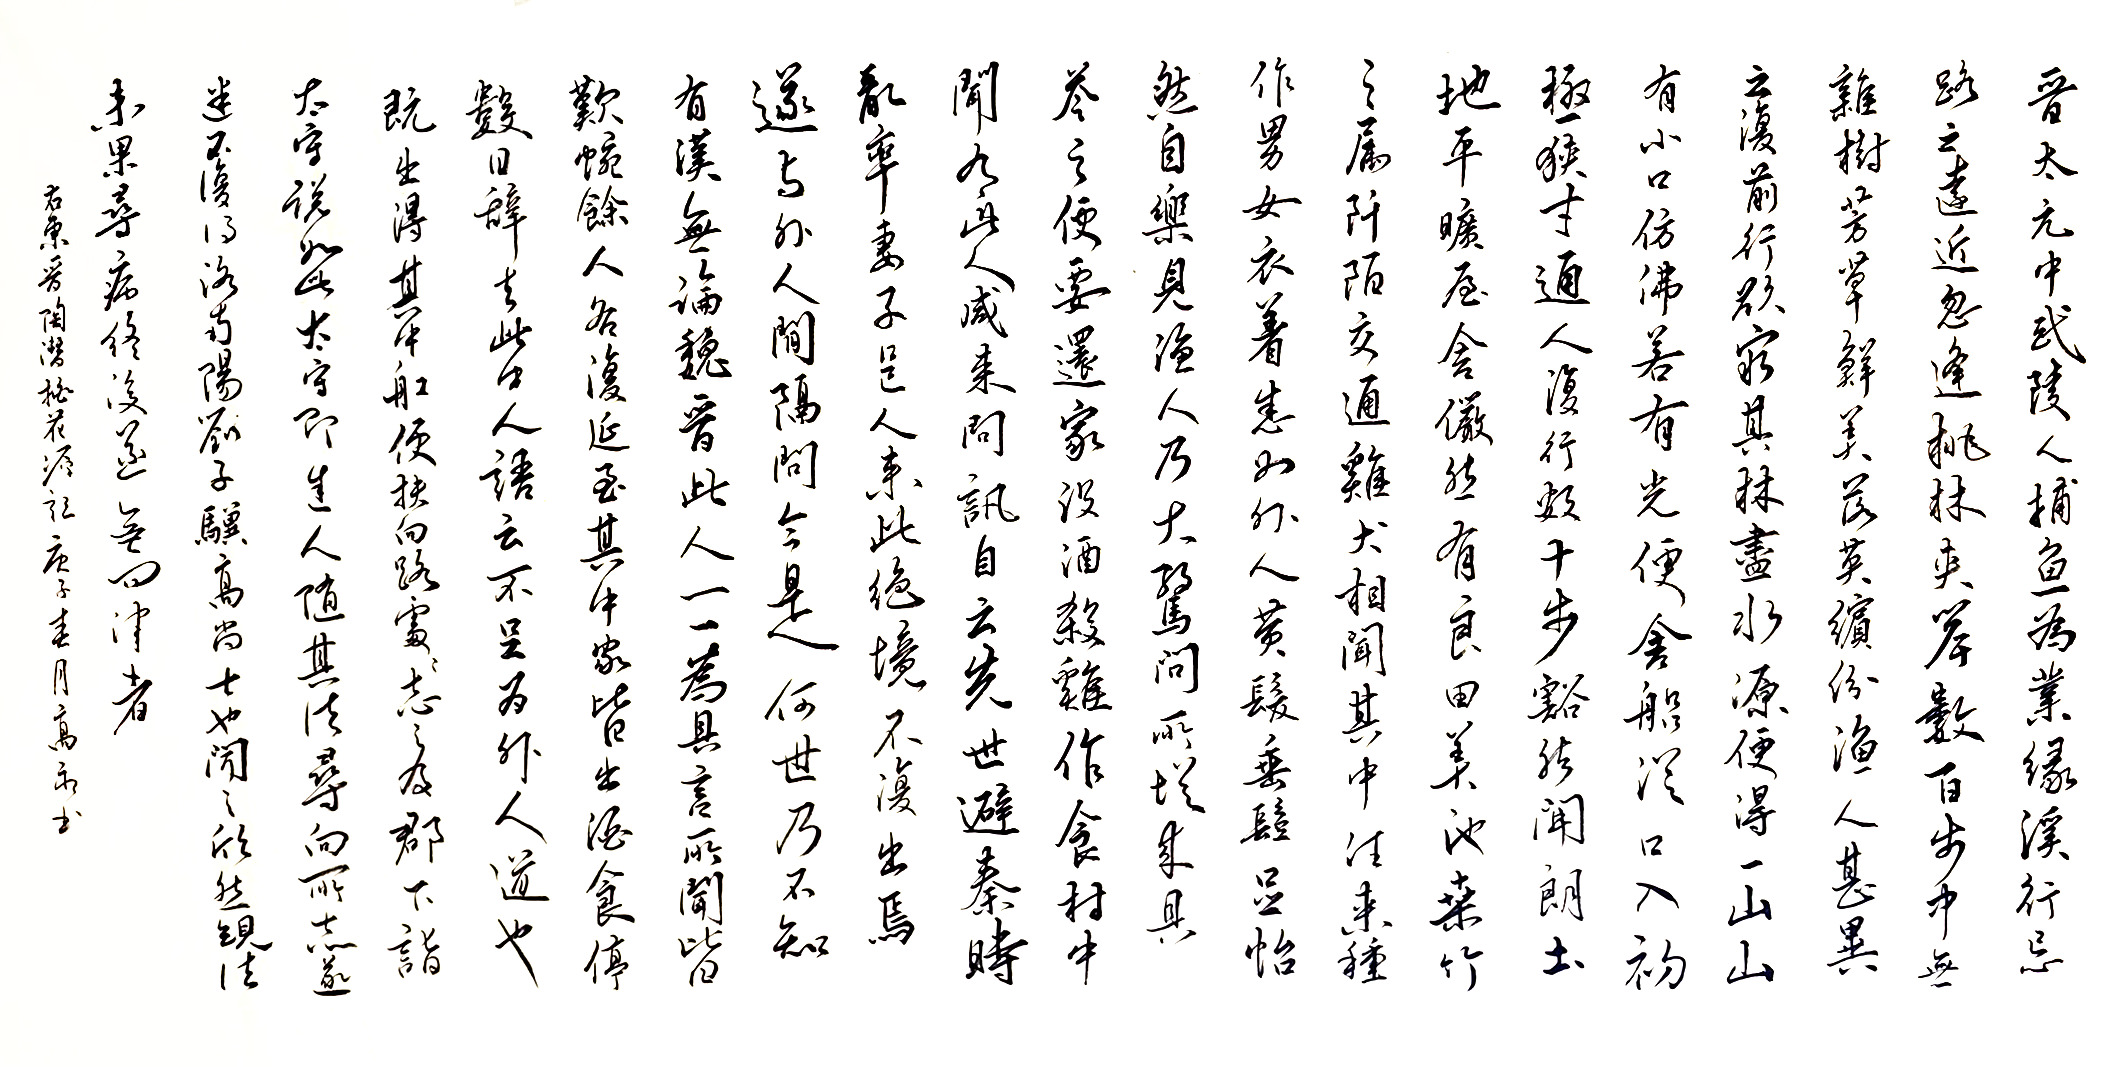 晉太元中武陵人捕魚為業緣溪行忘
路之遠近忽逢桃林夾岸數百步中無
雜樹芳草鮮美落英繽紛漁人甚異
之復前行欲窮其林林盡水源便得一山山
有小口仿佛若有光便舍船從口入初
極狹才通人復行數十步豁然開朗土
地平曠屋舍儼然有良田美池桑竹
之屬阡陌交通雞犬相聞其中往來種
作男女衣著悉如外人黃髮垂髫並怡
然自樂見漁人乃大驚問所從來具
答之便要還家設酒殺雞作食村中
聞有此人咸來問訊自云先世避秦時
亂率妻子邑人來此絕境不復出焉
遂與外人間隔問今是何世乃不知
有漢無論魏晉此人一一為具言所聞皆
歎惋餘人各復延至其中家皆出酒食停
數日辭去此中人語云不足為外人道也
既出得其中船便扶向路處處志之及郡下詣
太守說如此太守即遣人隨其往尋向所志遂
迷不復得路南陽劉子驥高尚士也聞之欣然規往
未果尋病終後遂無問津者
右東晉陶潛桃花源記庚子春月高永書